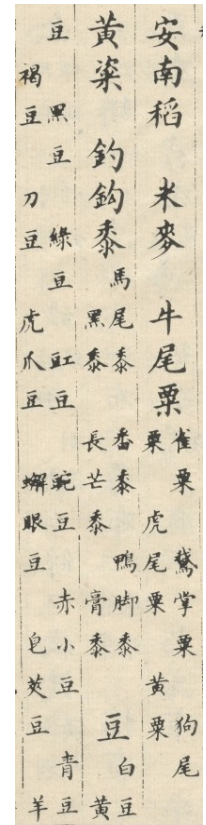 安南稻 米麥 牛尾粟
雀粟 鵞掌粟 狗尾
粟 虎尾粟 黃粟
黃粱 釣鈎黍
馬尾黍 番黍 鴨脚黍
黑黍 長芒黍 膏黍
豆
白豆
黃
豆 黑豆 綠豆 豇豆 豌豆 赤小豆 青豆
褐豆 刀豆 虎爪豆 蠏眼豆 皂莢豆 羊